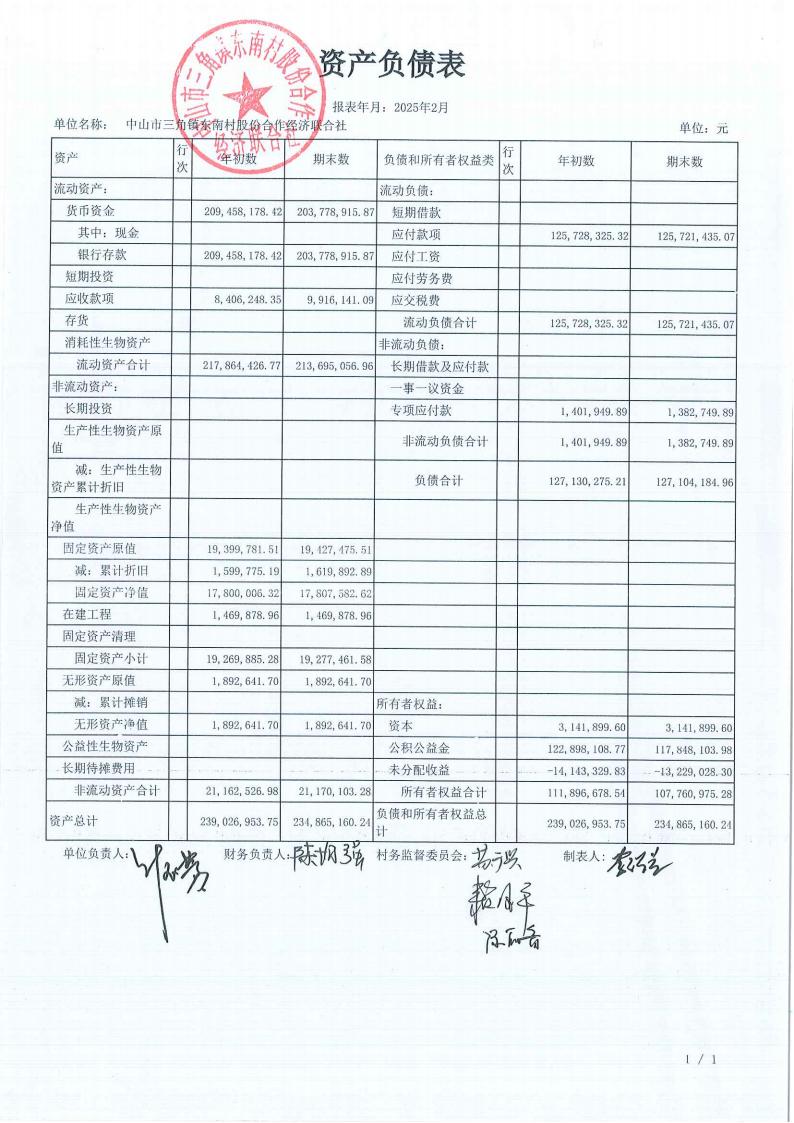 资产负债表
中山市三角镇东南村股份合作经济联合社
报表年月：2025年2月
单位名称： 中山市三角镇东南村股份合作经济联合社 单位：元
资产 行次 年初数 期末数 负债和所有者权益类 行次 年初数 期末数
流动资产： 流动负债：
货币资金 209,458,178.42 203,778,915.87 短期借款
其中：现金 应付款项 125,728,325.32 125,721,435.07
银行存款 209,458,178.42 203,778,915.87 应付工资
短期投资 应付劳务费
应收款项 8,406,248.35 9,916,141.09 应交税费
存货 流动负债合计 125,728,325.32 125,721,435.07
消耗性生物资产 非流动负债：
流动资产合计 217,864,426.77 213,695,056.96 长期借款及应付款
非流动资产： 一事一议资金
长期投资 专项应付款 1,401,949.89 1,382,749.89
生产性生物资产原值 非流动负债合计 1,401,949.89 1,382,749.89
减：生产性生物资产累计折旧 负债合计 127,130,275.21 127,104,184.96
生产性生物资产净值
固定资产原值 19,399,781.51 19,427,475.51
减：累计折旧 1,599,775.19 1,619,892.89
固定资产净值 17,800,006.32 17,807,582.62
在建工程 1,469,878.96 1,469,878.96
固定资产清理
固定资产小计 19,269,885.28 19,277,461.58
无形资产原值 1,892,641.70 1,892,641.70
减：累计摊销 所有者权益：
无形资产净值 1,892,641.70 1,892,641.70 资本 3,141,899.60 3,141,899.60
公益性生物资产 公积公益金 122,898,108.77 117,848,103.98
长期待摊费用 未分配收益 -14,143,329.83 -13,229,028.30
非流动资产合计 21,162,526.98 21,170,103.28 所有者权益合计 111,896,678.54 107,760,975.28
资产总计 239,026,953.75 234,865,160.24 负债和所有者权益总计 239,026,953.75 234,865,160.24
单位负责人： 财务负责人： 村务监督委员会： 制表人：
1 / 1